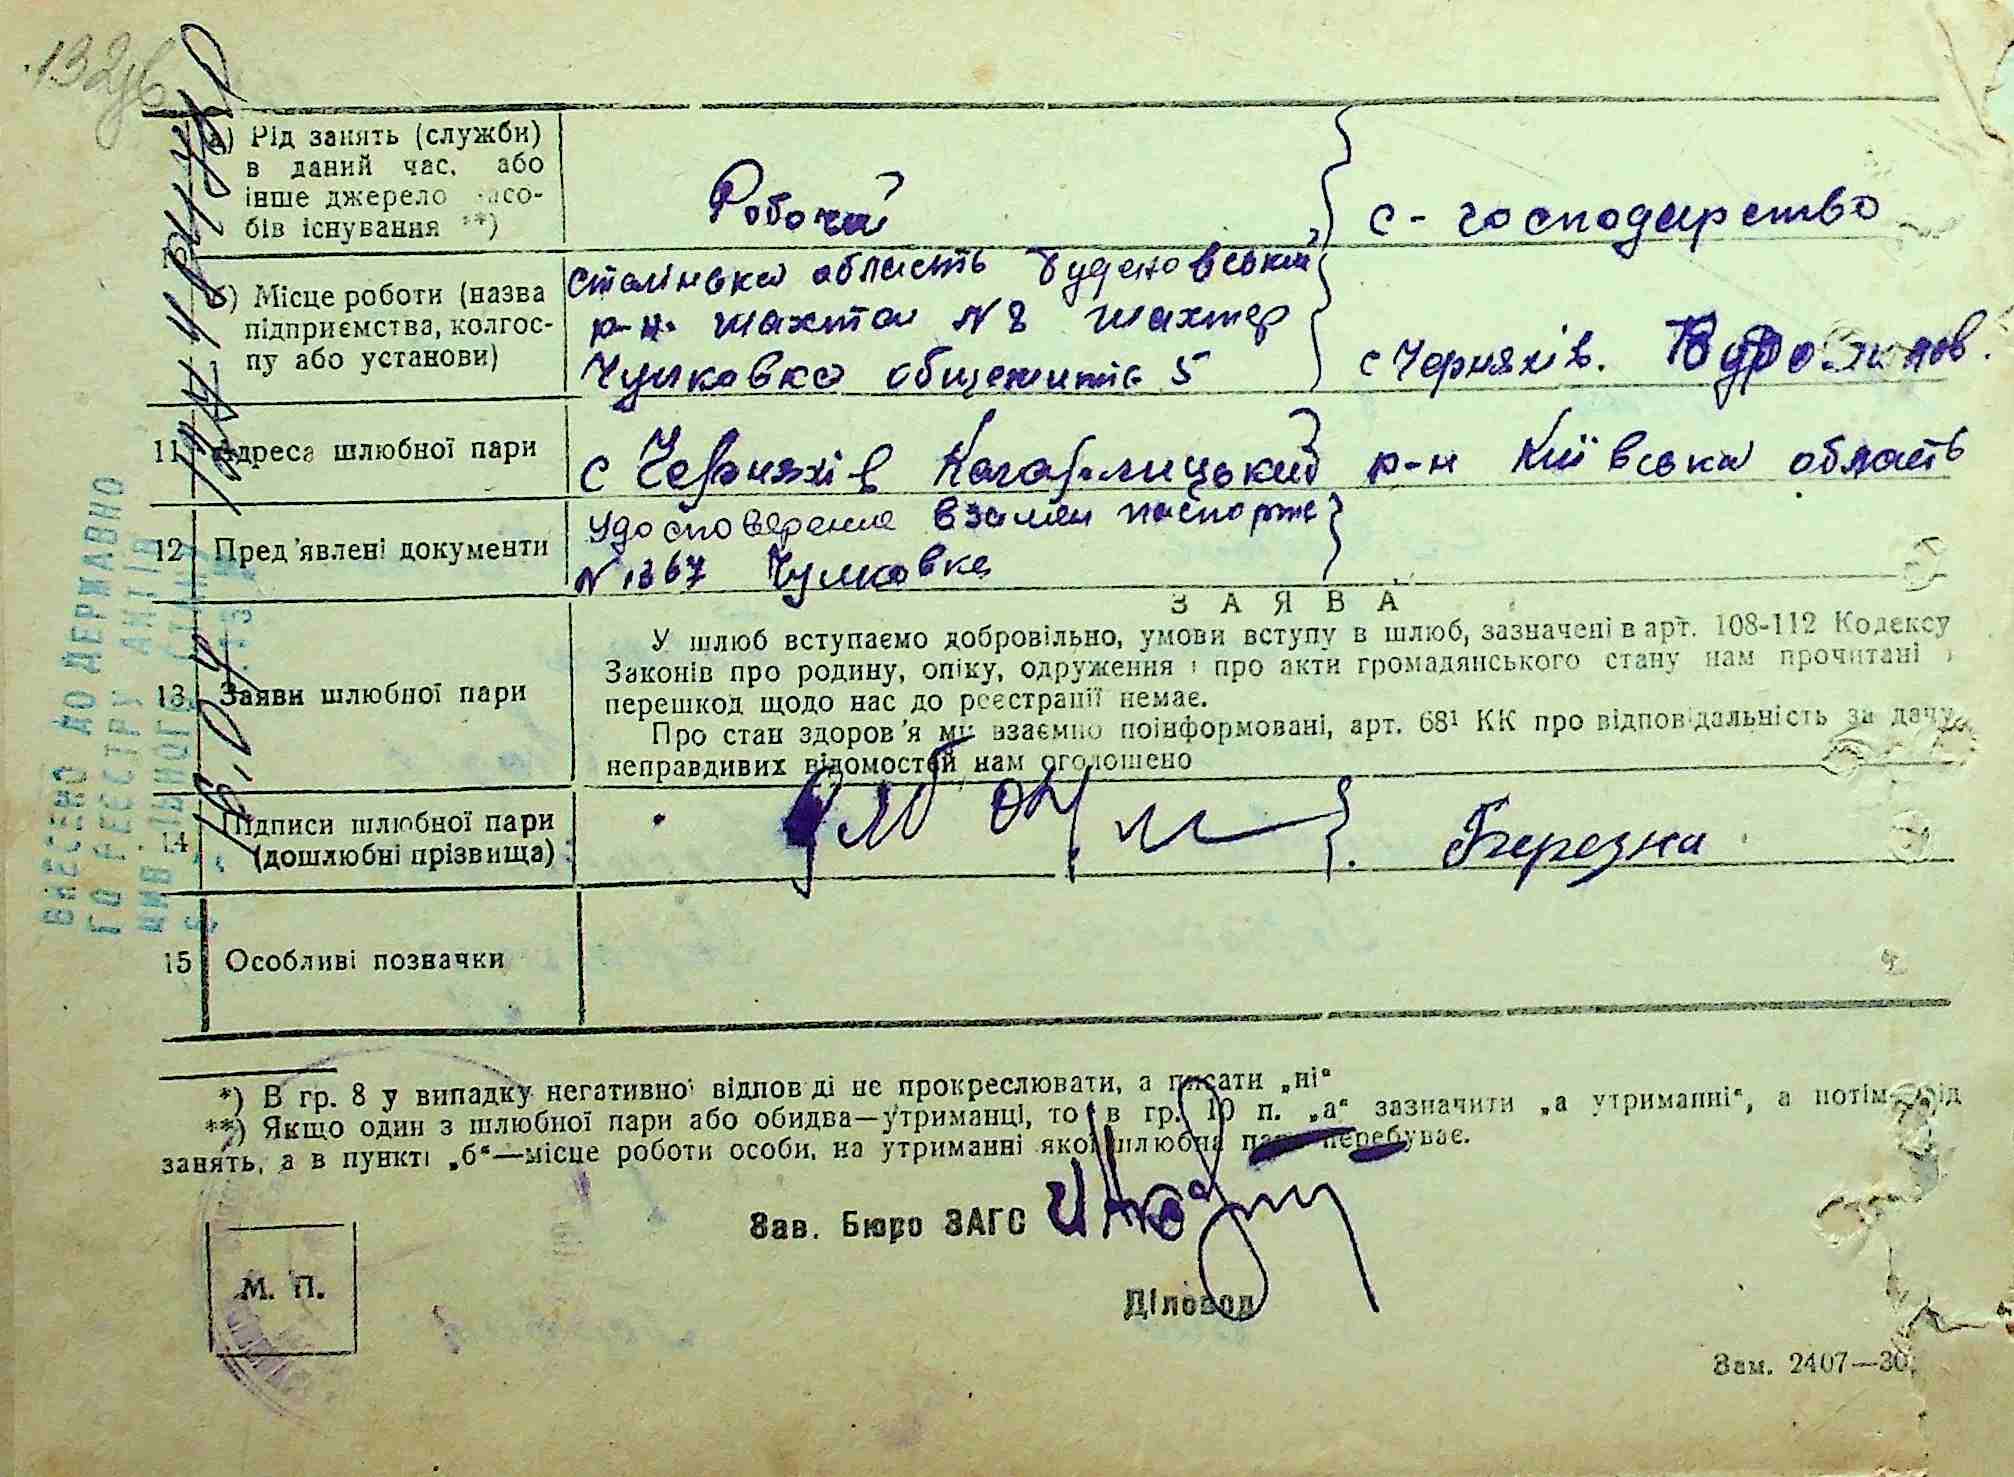 а) Рід занять (служби)
в даний час, або
інше джерело засо-
бів існування **)
Робочий
с-господарство
б) Місце роботи (назва
підприємства, колгос-
пу або установи)
Сталінська область Будьоновський
р-н. шахта № 8 шахтер
Чулковка общежитіє 5
с Черняхів.
11 Адреса шлюбної пари
с Черняхів Кагарлицький р-н Київська область
12 Пред'явлені документи
Удосповерение взамен паспорта
№ 1367 Чулковка
13 Заяви шлюбної пари
ЗАЯВА
У шлюб вступаємо добровільно, умови вступу в шлюб, зазначені в арт. 108-112 Кодексу
Законів про родину, опіку, одруження і про акти громадянського стану нам прочитані і
перешкод щодо нас до реєстрації немає.
Про стан здоров'я ми взаємно поінформовані, арт. 68¹ КК про відповідальність за дачу
неправдивих відомостей нам оголошено
14 Підписи шлюбної пари
(дошлюбні прізвища)
Березна
15 Особливі позначки
*) В гр. 8 у випадку негативної відповіді не прокреслювати, а писати „ні“
**) Якщо один з шлюбної пари або обидва—утриманці, то в гр. 10 п. „а“ зазначити „а утриманні“, а потім рід
занять, а в пункті „б“—місце роботи особи, на утриманні якої шлюбна пара перебуває.
Зав. Бюро ЗАГС
М. П.
Діловод
Зам. 2407—30.
ВНЕСЕНО ДО ДЕРЖАВНО
ГО РЕЄСТРУ АКТІВ
ЦИВІЛЬНОГО СТАНУ